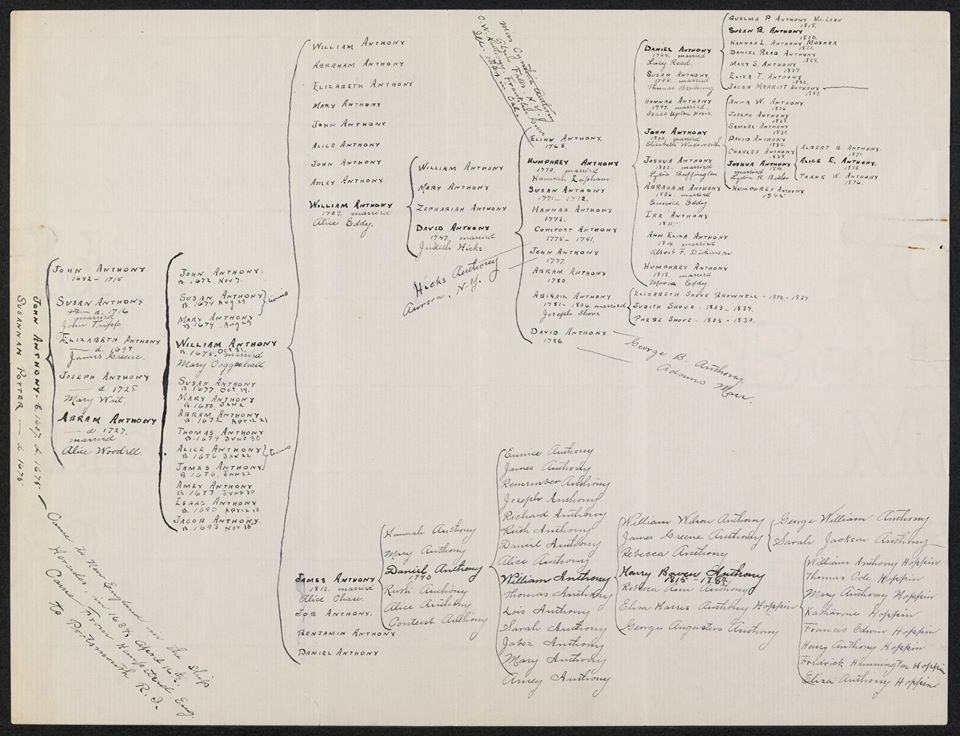 JOHN ANTHONY - b. 1607. d. 1675
SUSANNAH POTTER — d 1675
Came to New England in the ship
Hercules, in 1634, April 16th.
Came from Hampstead Eng
To Portsmouth R.I.
JOHN ANTHONY
1642 - 1715
SUSAN ANTHONY
d. 1716
married
John Tripp
ELIZABETH ANTHONY
— d. 1698
James Greene.
JOSEPH ANTHONY
— d 1725
Mary Wait.
ABRAM ANTHONY
— d 1727.
married
Alice Woodell.
JOHN ANTHONY.
B. 1672 NOV 7.
SUSAN ANTHONY
B. 1674 AUG 29
twins
MARY ANTHONY
B. 1674 AUG 29
WILLIAM ANTHONY
B. 1675. OCT 31. married
Mary Coggeshall
SUSAN ANTHONY
B. 1677 OCT 14.
MARY ANTHONY
ABRAM ANTHONY
THOMAS ANTHONY
ALICE ANTHONY
twins
JAMES ANTHONY
AMEY ANTHONY
ISAAC ANTHONY
B. 1690 APRIL 10
JACOB ANTHONY.
B. 1693 NOV 15
WILLIAM ANTHONY
ABRAHAM ANTHONY
ELIZABETH ANTHONY
MARY ANTHONY
JOHN ANTHONY
ALICE ANTHONY
JOHN ANTHONY
AMEY ANTHONY
WILLIAM ANTHONY
married
Alice Eddy.
JAMES ANTHONY
married
Alice Chase
JOB ANTHONY.
BENJAMIN ANTHONY
DANIEL ANTHONY
WILLIAM ANTHONY
MARY ANTHONY
ZEPHANIAH ANTHONY
DAVID ANTHONY
1747. married
Judith Hicks.
Hicks Anthony
Aurora, N.Y.
ELIHU ANTHONY.
1768.
HUMPHREY ANTHONY
1770. married
Hannah Lapham.
SUSAN ANTHONY
1771 - 1772.
HANNAH ANTHONY
1773.
COMFORT ANTHONY
JOHN ANTHONY
1777.
ABRAM ANTHONY
1780.
ABIGAIL ANTHONY
married
Joseph Shove
DAVID ANTHONY
1786.
George B. Anthony.
Adams Mass.
DANIEL ANTHONY
1794. married
Lucy Read.
SUSAN ANTHONY
married
HANNAH ANTHONY
1797. married.
JOHN ANTHONY
1800. married
Elizabeth Wadsworth
JOSHUA ANTHONY
married
Lydia
ABRAHAM ANTHONY
married
Eunice Eddy.
IRA ANTHONY
1811.
ANN ELIZA ANTHONY
1814. married
Albert F. Dickinson
HUMPHREY ANTHONY
married
Maria Eddy
ELIZABETH SHOVE BROWNELL -
JUDITH SHOVE -
PHEBE SHOVE -
GUELMA P. ANTHONY MCLEAN
1818.
SUSAN B. ANTHONY
1820.
HANNAH L. ANTHONY MOSHER
1821.
DANIEL READ ANTHONY
1824.
MARY S. ANTHONY
1827
ELIZA T. ANTHONY
1832.
JACOB MERRITT ANTHONY
1834.
ANNA W. ANTHONY
JOSEPH ANTHONY
SAMUEL ANTHONY
DAVID ANTHONY
CHARLES ANTHONY
JOSHUA ANTHONY
married
HUMPHREY ANTHONY
ALBERT B. ANTHONY.
1871.
ALICE E. ANTHONY.
FRANK W. ANTHONY
1876.
Hannah Anthony
Mary Anthony
Daniel Anthony
1740
Ruth Anthony
Alice Anthony
Content Anthony
Eunice Anthony
James Anthony
Remember Anthony
Joseph Anthony
Richard Anthony
Ruth Anthony
Daniel Anthony
Alice Anthony
William Anthony
Thomas Anthony
Lois Anthony
Sarah Anthony
Jabez Anthony
Mary Anthony
Amey Anthony
William Wilson Anthony
James Greene Anthony
Rebecca Anthony
Henry Bowen Anthony
1815 - 1884
Rebecca Ann Anthony
Eliza Harris Anthony Hoppin
George Augustus Anthony
George William Anthony
Sarah Jackson Anthony
William Anthony Hoppin
Thomas Cole Hoppin
Mary Anthony Hoppin
Katharine Hoppin
Francis Edwin Hoppin
Henry Anthony Hoppin
Fredrick Hunnington Hoppin
Eliza Anthony Hoppin